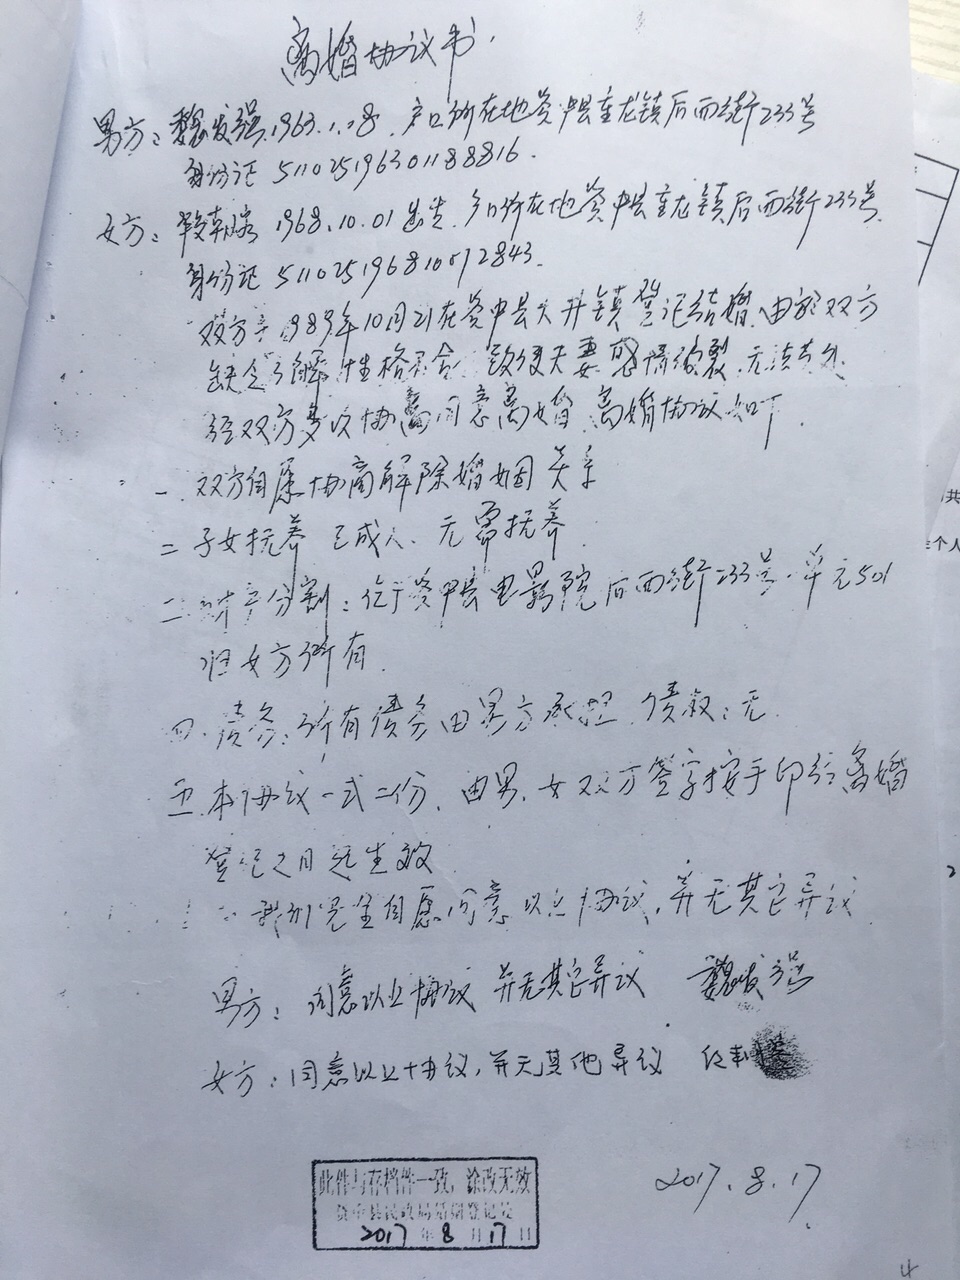 离婚协议书.
男方：魏发强.1963.1.18.户口所在地资中县重龙镇后西街233号
身份证 511025196301188816.
女方：1968.10.01出生.户口所在地资中县重龙镇后西街233号.
身份证 511025196810012843.
双方于1989年10月21在资中县大井镇登记结婚.由於双方
缺乏了解 性格不合 致使夫妻感情破裂.无法共处.
经双方多次协商同意离婚.离婚协议如下.
一.双方自愿协商解除婚姻关系
二 子女抚养 已成人、无需抚养.
三.财产分割：位于资中县电影院后西街233号一单元501
归女方所有.
四.债务：所有债务由男方承担.债权：无.
五.本协议一式二份.由男.女双方签字按手印经离婚
登记之日起生效
我们完全自愿同意以上协议.并无其它异议
男方：同意以上协议 并无其它异议 魏发强
女方：同意以上协议，并无其他异议 段
2017.8.17
此件与存档件一致，涂改无效
资中县民政局婚姻登记处
2017年8月17日
4
共
三个人
2